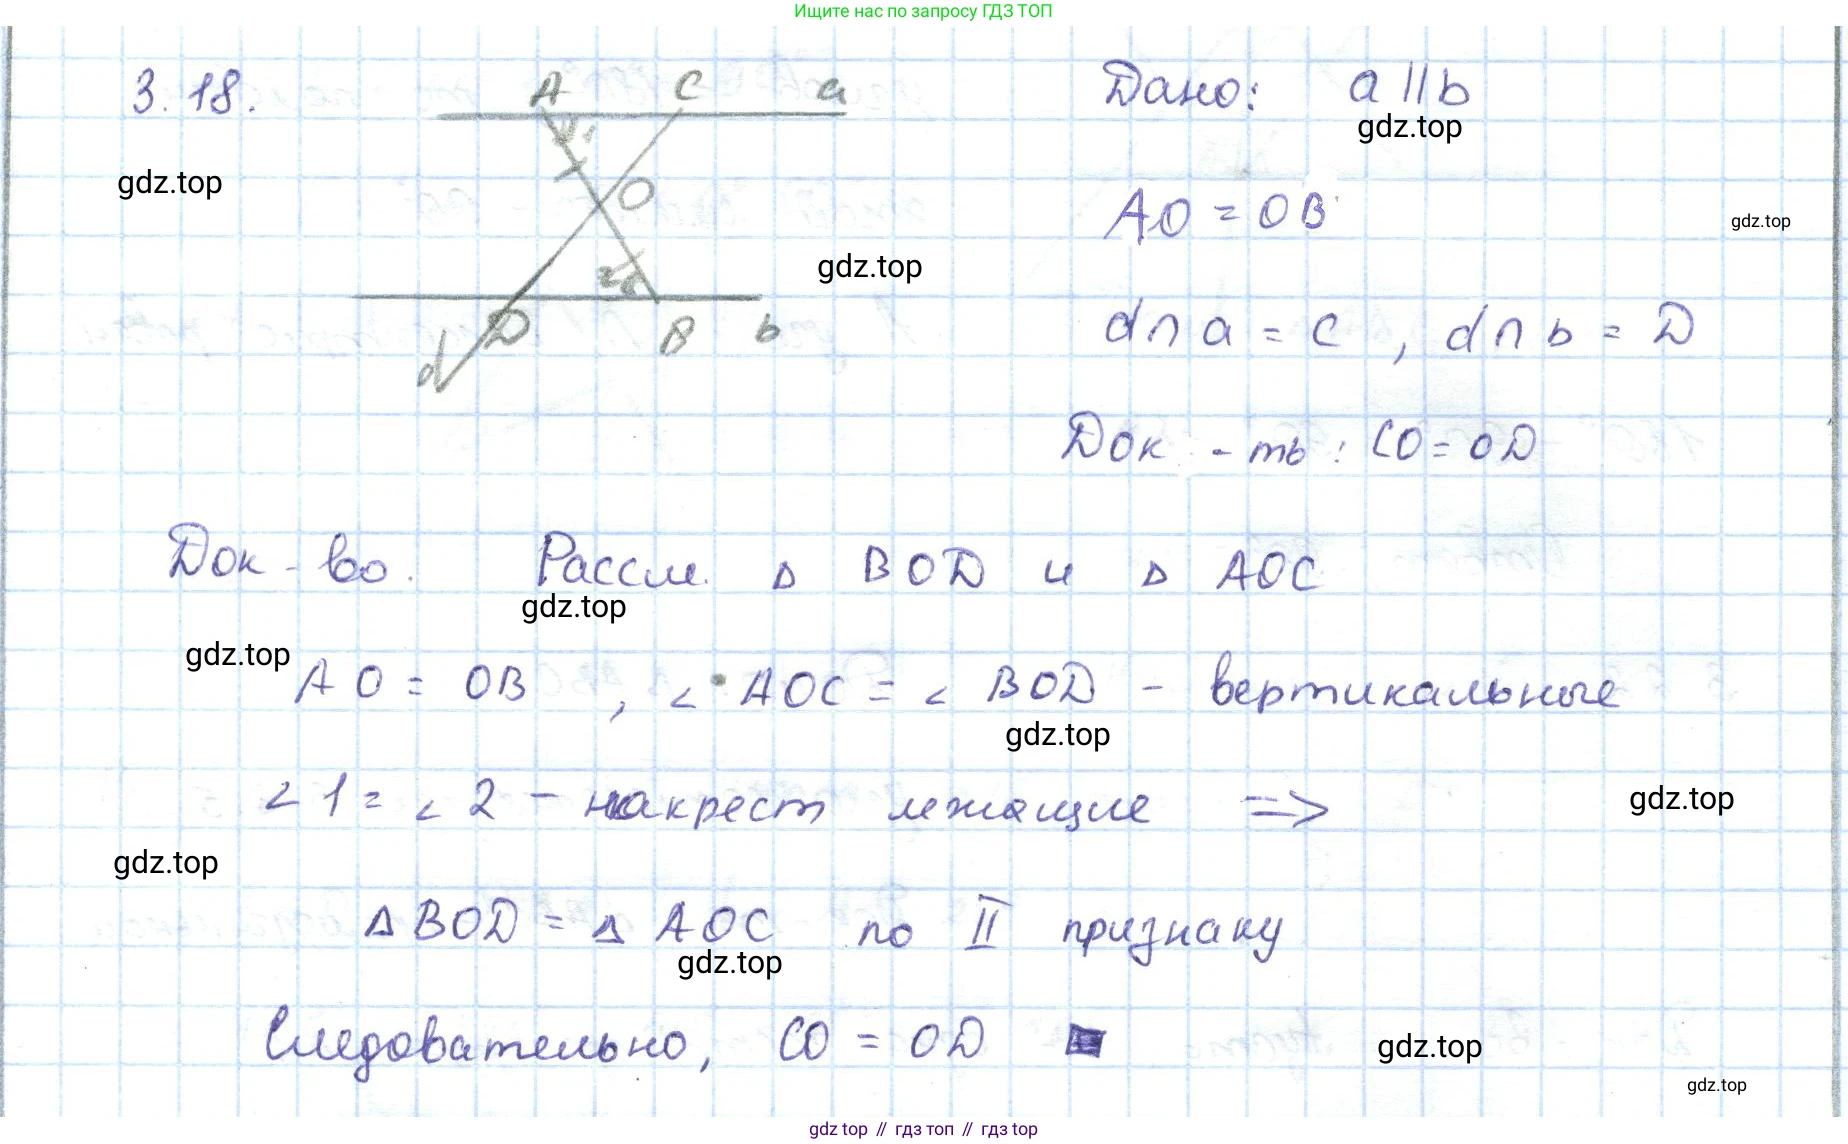 Ищите нас по запросу ГДЗ ТОП
3.18.
A C a
1
O
2
D B b
d
Дано: a || b
gdz.top
gdz.top
AO = OB
gdz.top
gdz.top
d ∩ a = C, d ∩ b = D
Док-ть: CO = OD
Док-во. Рассм. Δ BOD и Δ AOC
gdz.top
gdz.top
AO = OB, ∠ AOC = ∠ BOD - вертикальные
gdz.top
∠1 = ∠2 - накрест лежащие =>
gdz.top
gdz.top
Δ BOD = Δ AOC по II признаку
gdz.top
Следовательно, CO = OD
gdz.top
gdz.top
gdz.top // гдз топ // gdz.top